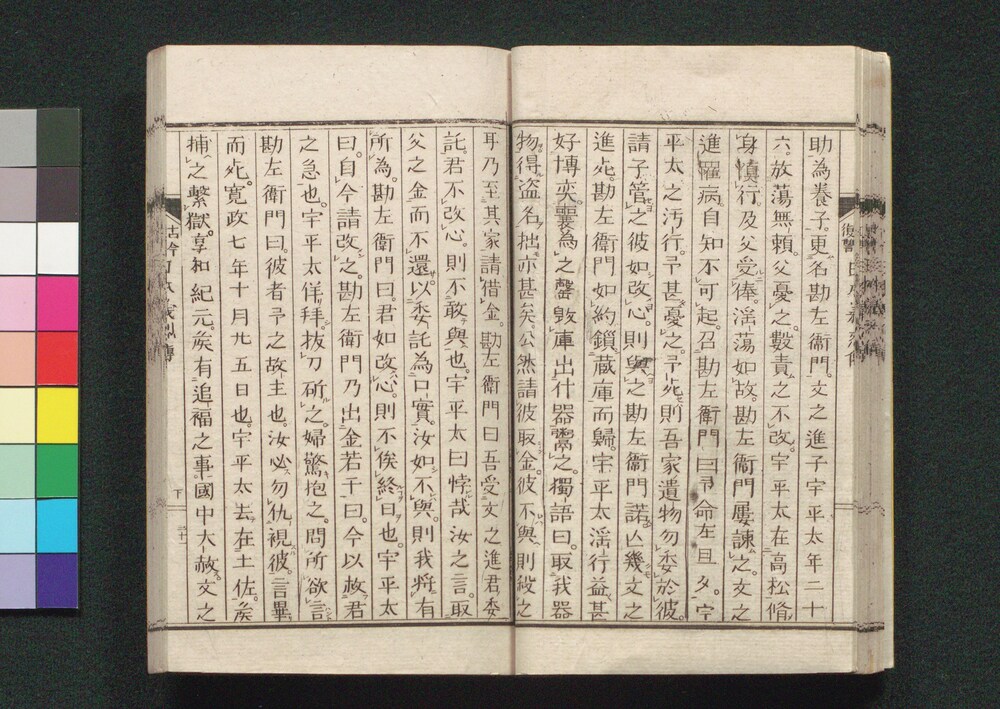 助為養子。更名勘左衛門。文之進子宇平太年二十
六。放蕩無頼。父憂之。數責之不改。宇平太在高松脩
身慎行。及父受俸。滛蕩如故。勘左衛門屢諫之。文之
進罹病。自知不可起。召勘左衛門曰。予命在旦夕。宇
平太之汚行。予甚憂之。予死則吾家遺物勿委於彼。
請子管之。彼如改心。則與之。勘左衛門諾。亡幾文之
進死。勘左衛門如約鎖蔵庫而歸。宇平太滛行益甚
好博奕。囊為之罄。毀庫出什器鬻之。獨語曰。取我器
物得盗名。拙亦甚矣。公然請彼取金。彼不與則殺之
耳。乃至其家請借金。勘左衛門曰。吾受文之進君委
託。君不改心。則不敢與也。宇平太曰。悖哉汝之言。取
父之金而不還。以委託為口實。汝如不與。則我將有
所為。勘左衛門曰。君如改心。則不俟終日也。宇平太
曰。自今請改之。勘左衛門乃出金若干曰。今以赦君
之急也。宇平太佯拜。抜刀斫之。婦驚抱之。問所欲言
勘左衛門曰。彼者予之故主也。汝必勿仇視彼。言畢
而死。寛政七年十月廿五日也。宇平太去在土佐。矦
捕之繫獄。享和紀元。矦有追福之事。國中大赦。文之
復讐
下
二十